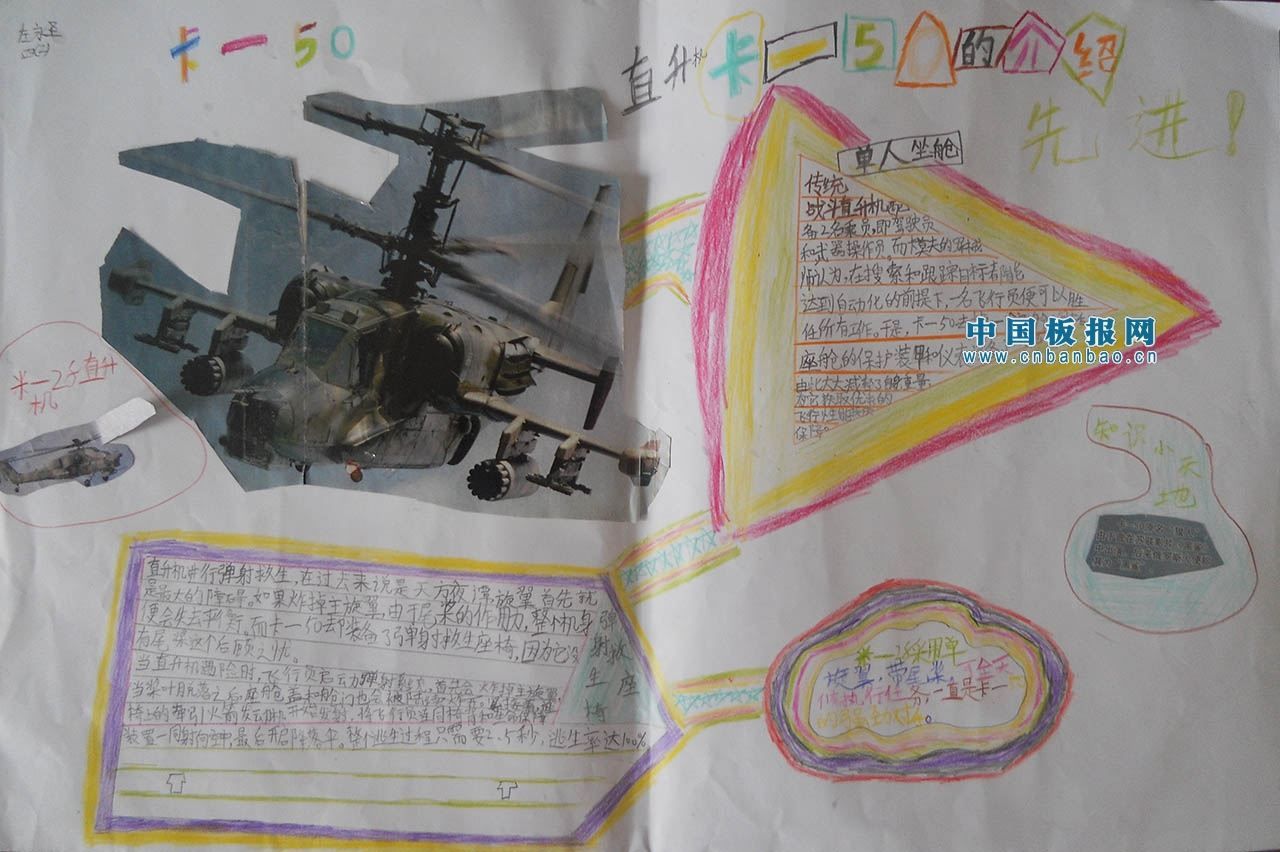 卡一50
直升机卡一50的介绍
先进！
单人坐舱
传统
战斗直升机配
备2名乘员，即驾驶员
和武器操作员。而卡莫夫的
师认为，在搜索和跟踪目标有能
达到自动化的前提下，一名飞行员便可以胜
任所有工作。于是，卡一50
座舱的保护装甲和仪
由此大大减轻了
飞行性能
保障。
中国板报网
www.cnbanbao.cn
米一28直升
机
知识
小天
地
直升机进行弹射救生，在过去来说是天方夜谭，旋翼首先就
是最大的障碍。如果炸掉主旋翼，由于尾桨的作用，整个机身
便会失去平衡。而卡一50却装备了弹射救生座椅，因为它没
有尾桨这个后顾之忧。
当直升机遇险时，飞行员启动弹射程序，首先会炸掉主旋翼，
当桨叶脱落之后，座舱盖和舱门也会被
椅上的牵引火箭发动机开始点火，将飞行员连同椅背和生命保障
装置一同射向空中，最后开启降落伞。整个逃生过程只需要2.5秒，逃生率达100%
弹
射救
生座
椅
米一28采用单
旋翼，带尾桨，可全天
候执行任务，一直是卡一
的强劲对手。